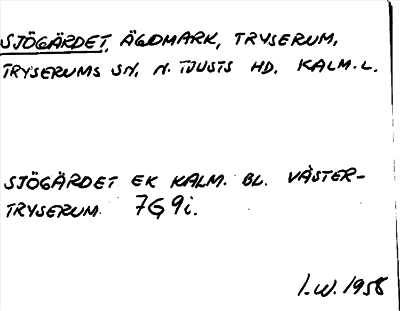 SJÖGÄRDET, ÄGOMARK, TRYSERUM,
TRYSERUMS SN, N. TJUSTS HD, KALM. L.
SJÖGÄRDET EK KALM. BL. VÄSTER-
TRYSERUM 7G9i.
I.W. 1958